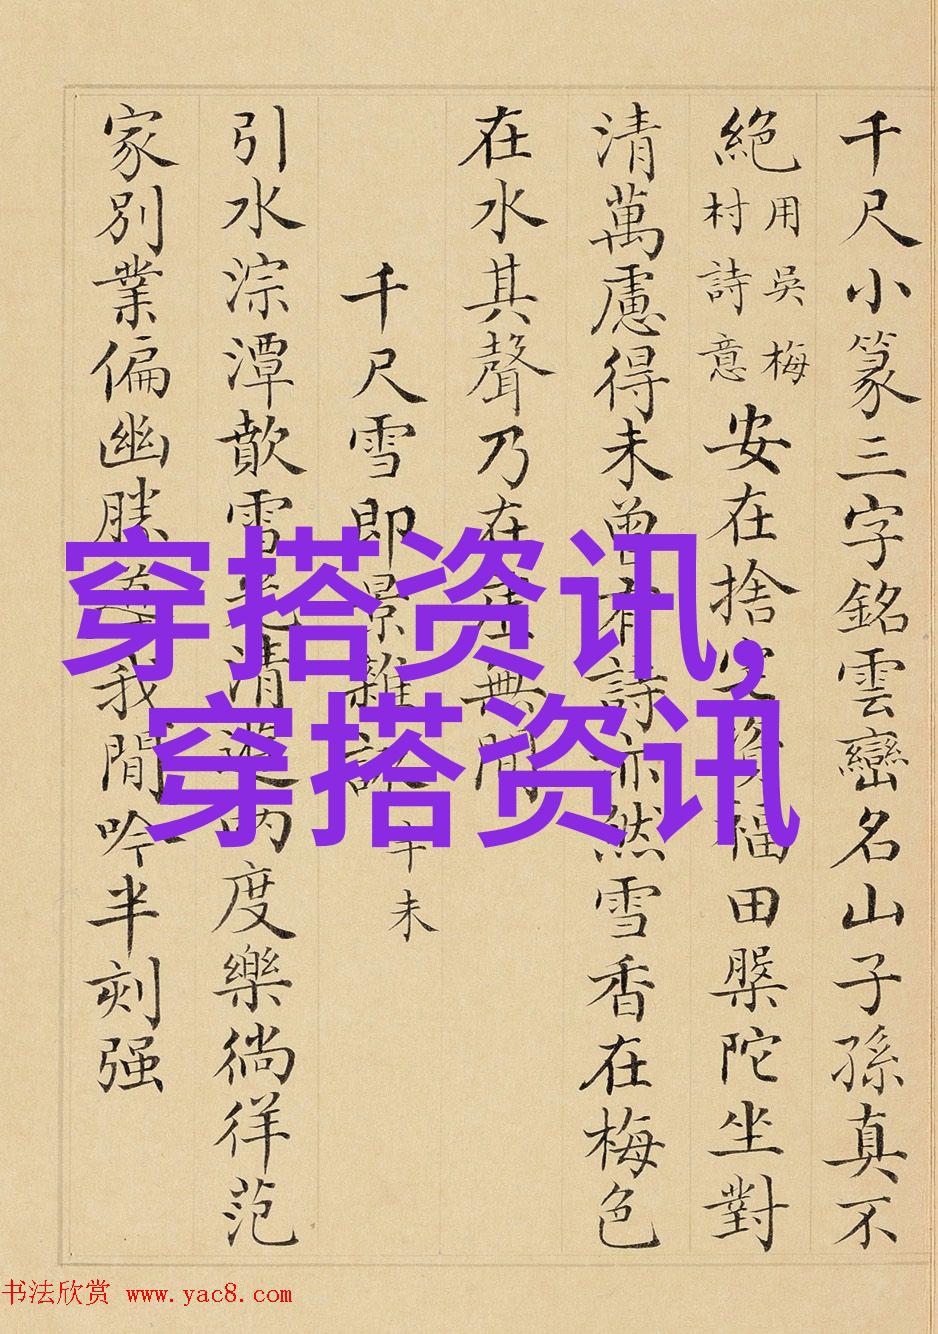 千尺小篆三字銘雲巒名山子孫真不
絕用吳梅村詩意安在捨定資福田槃陀坐對
清萬慮得未曾有詩亦然雪香在梅色
在水其聲乃在無間
千尺雪即景雜詠辛未
引水淙潭歕雪清遊两度樂徜徉范
家別業偏幽勝我閒吟半刻强
穿搭资讯,
穿搭资讯
书法欣赏 www.yac8.com